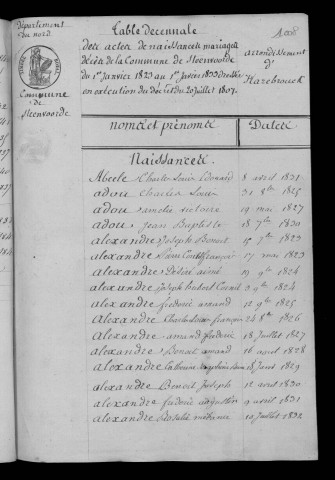 Département
du nord
Commune
de
Steenvoorde
1008
Table decennale
des actes de naissances mariages
décès de la Commune de Steenvoorde
du 1er janvier 1823 au 1er janvier 1833 dressée
en exécution du décret du 20 juillet 1807.
arrondissement
d'
Hazebrouck
noms et prénoms Dates
Naissances.
Abeele Charles Louis Edouard 8 avril 1831
adou Charles Louis 31 8bre 1825
adou amelie victoire 19 mai 1827
adou Jean Baptiste 18 7bre 1830
alexandre Joseph Benoit 15 7bre 1823
alexandre françois 17 mai 1823
alexandre Désiré aimé 19 9bre 1824
alexandre joseph hubert 3 9bre 1824
alexandre frédéric amand 12 9bre 1825
alexandre Charles Louis françois 24 8bre 1826
alexandre amand frédéric 18 Juillet 1827
alexandre Benoit amand 16 avril 1828
alexandre Catherine 18 Juin 1829
alexandre Benoit Joseph 12 avril 1830
alexandre frédéric augustin 9 avril 1831
alexandre Rosalie 10 Juillet 1832